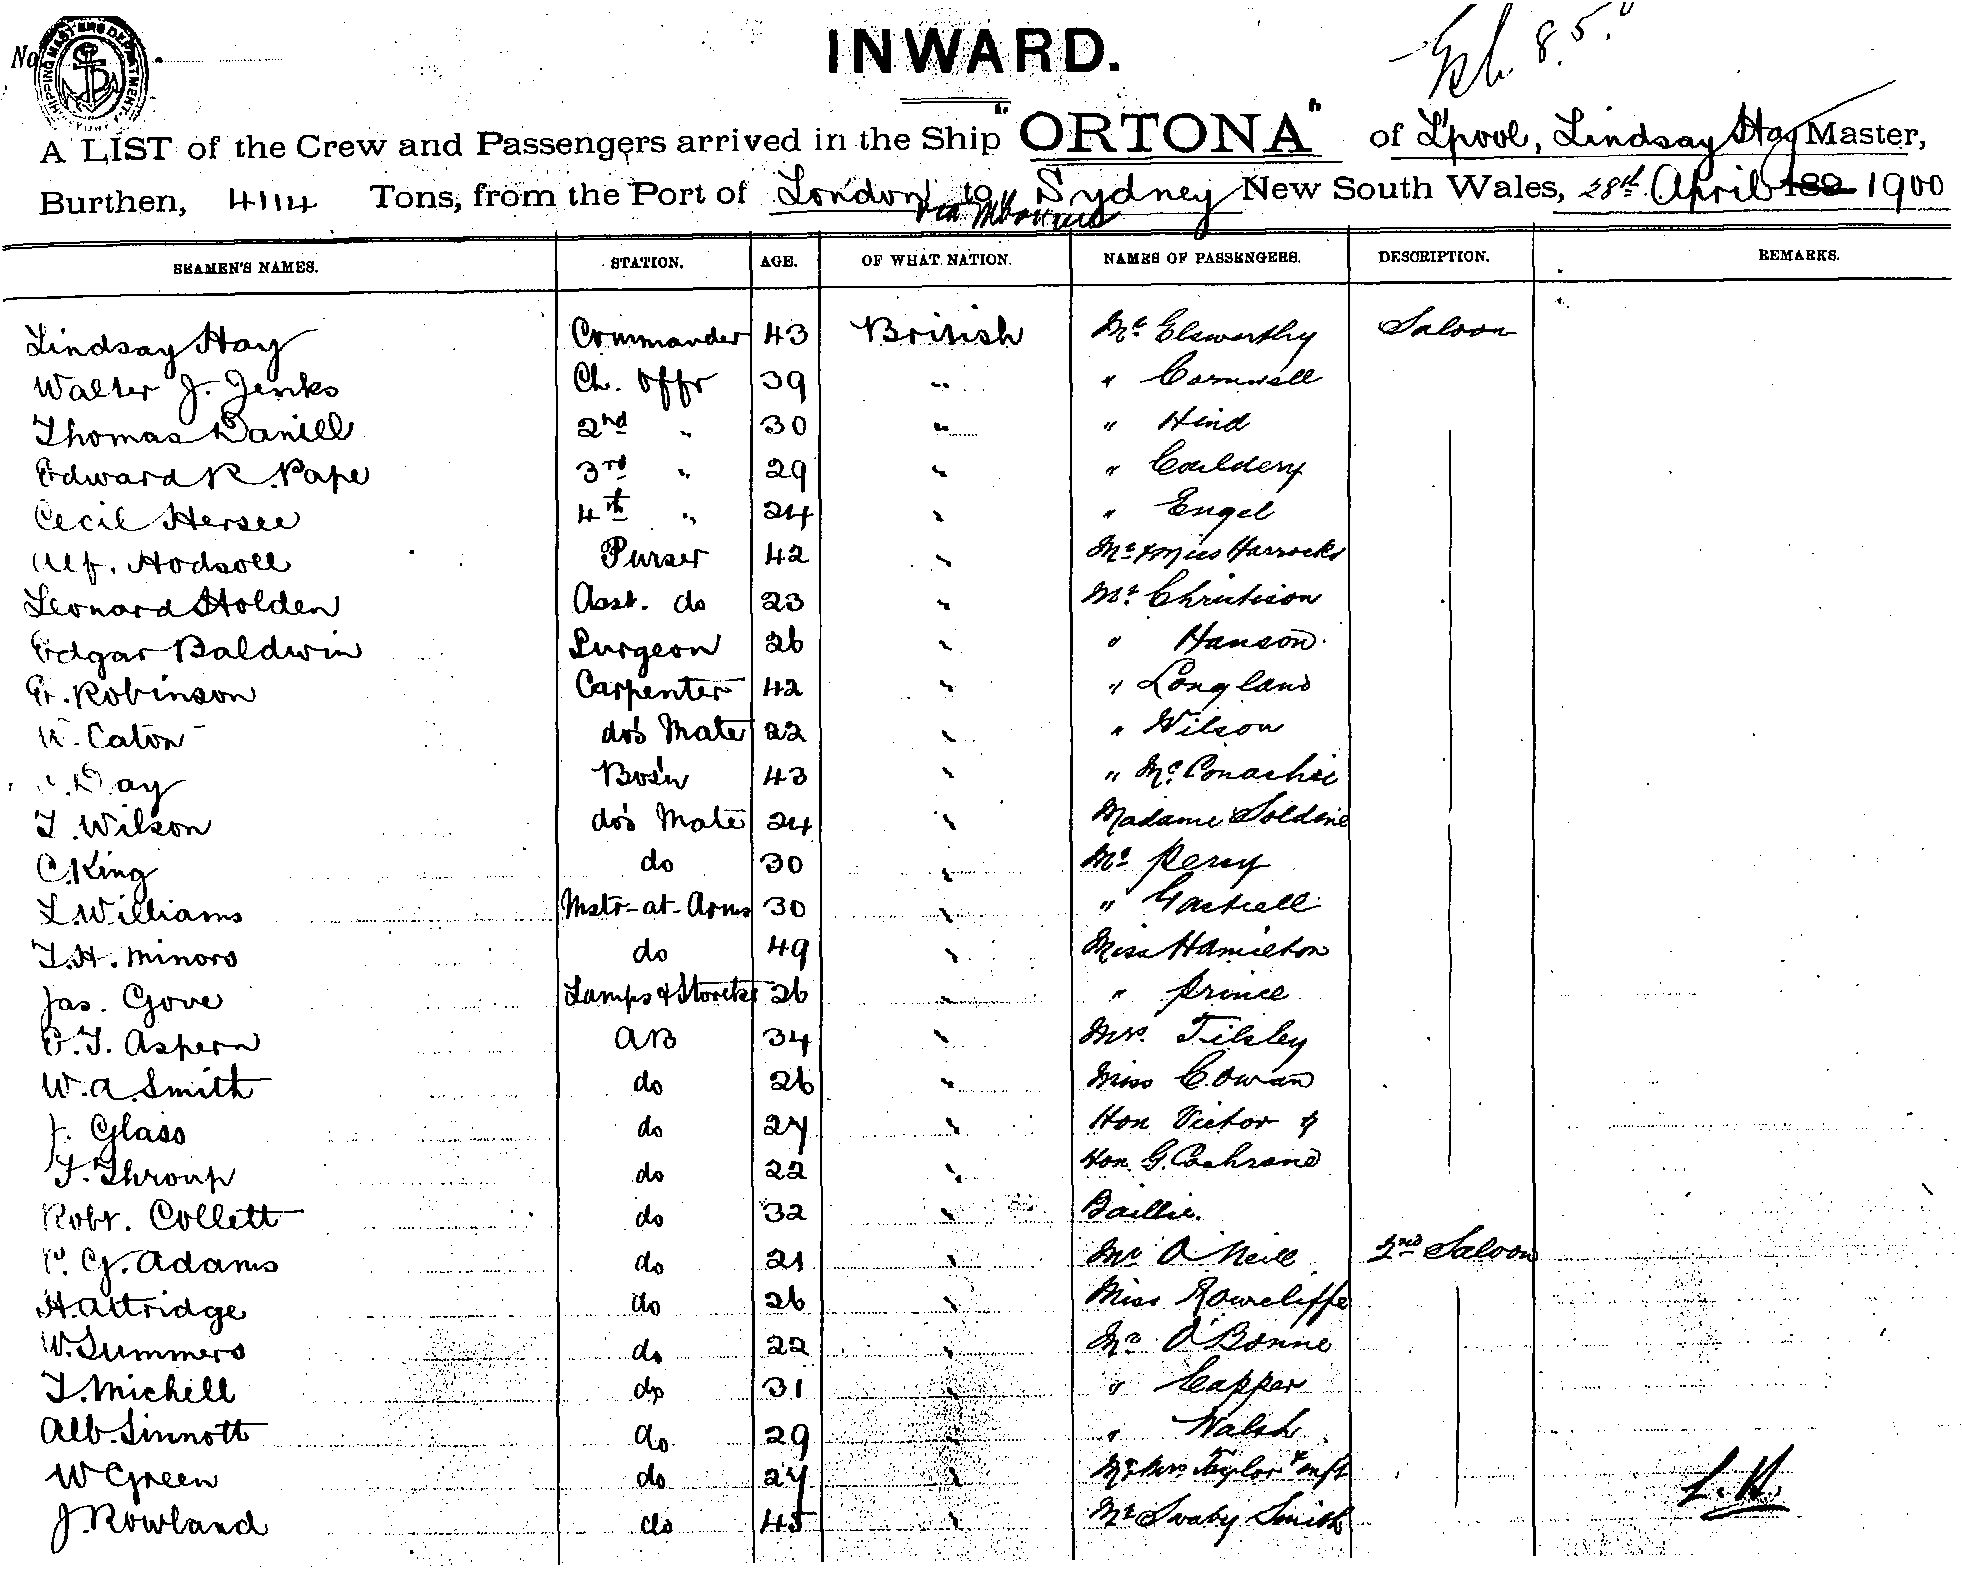 No
SHIPPING MASTERS DEPARTMENT
INWARD.
8.5.
A LIST of the Crew and Passengers arrived in the Ship "ORTONA" of L'pool, Lindsay Hay Master,
Burthen, 4114 Tons, from the Port of London to Sydney New South Wales, 28th April 189 1900
via M'bourne
SEAMEN'S NAMES. STATION. AGE. OF WHAT NATION. NAMES OF PASSENGERS. DESCRIPTION. REMARKS.
Lindsay Hay Commander 43 British Mr Elsworthy Saloon
Walter J. Jenks Ch. Offr 39 " " Cornwell
Thomas Daniell 2nd " 30 " " Hind
Edward R. Pape 3rd " 29 " " Couldery
Cecil Hersee 4th " 24 " " Engel
Alf. Hodsoll Purser 42 " Mr & Miss Horrocks
Leonard Holden Asst. do 23 " Mr Christison
Edgar Baldwin Surgeon 26 " " Hanson
Robinson Carpenter 42 " " Longland
W. Caton do's Mate 22 " " Wilson
Day Bos'n 43 " " McConachie
T. Wilson do's Mate 24 " Madame Soldene
C. King do 30 " Mr Percy
L. Williams Mstr-at-Arms 30 " "
T. H. Minors do 49 " Miss Hamilton
Jas. Gove Lamps & Storeks 26 " " Prince
E. T. Aspern AB 34 " Mrs. Tilsley
W. A. Smith do 26 " Miss Cowan
J. Glass do 27 " Hon Victor &
T. Throup do 22 " Hon. G. Cochrane
Robt. Collett do 32 " Baillie.
G. Adams do 21 " Mr O'Neill 2nd Saloon
H. Attridge do 26 " Miss Rowcliffe
W. Summers do 22 " Mr O'Bonne
T. Michell do 31 " " Capper
Alb. Sinnott do 29 " " Walsh
W Green do 27 " Mr & Mrs Taylor & inft
J. Rowland do 45 " Mr Swaby Smith
L. H.